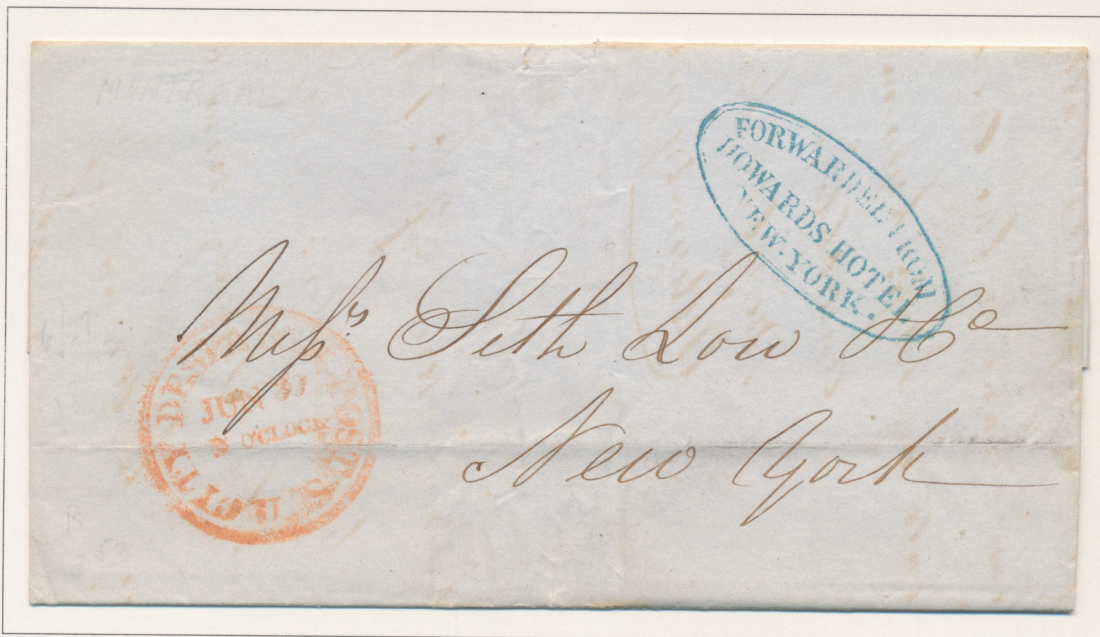 FORWARDED FROM
HOWARDS HOTEL
NEW.YORK.
Messrs Seth Low & Co
New York
U.S. CITY DESPATCH POST
JUN
3 O'CLOCK